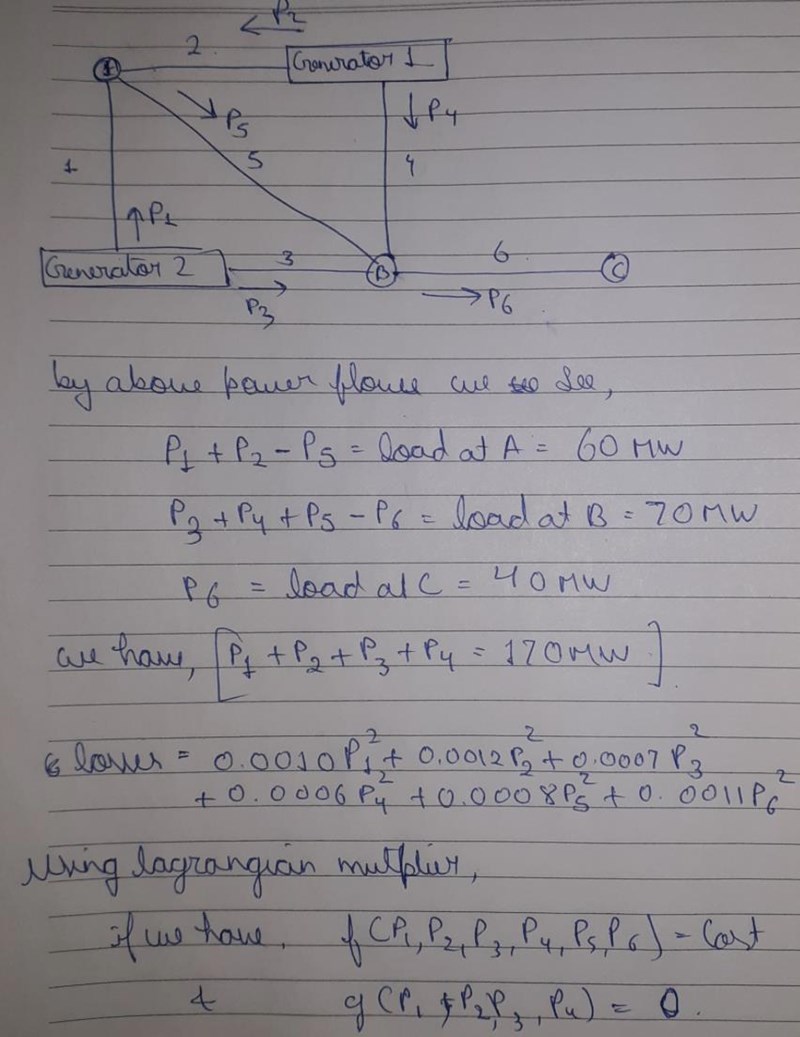 P2
2
A
Generator 1
P5
P4
1
5
4
P1
Generator 2
3
B
6
C
P3
P6
by above power flows we see,
P1 + P2 - P5 = load at A = 60 MW
P3 + P4 + P5 - P6 = load at B = 70 MW
P6 = load at C = 40 MW
we have, [P1 + P2 + P3 + P4 = 170 MW]
& losses = 0.0010P1² + 0.0012P2² + 0.0007 P3²
+ 0.0006 P4² + 0.0008P5² + 0.0011P6²
Using lagrangian multplier,
if we have, f(P1, P2, P3, P4, P5, P6) = Cost
& g(P1, P2, P3, P4) = 0.